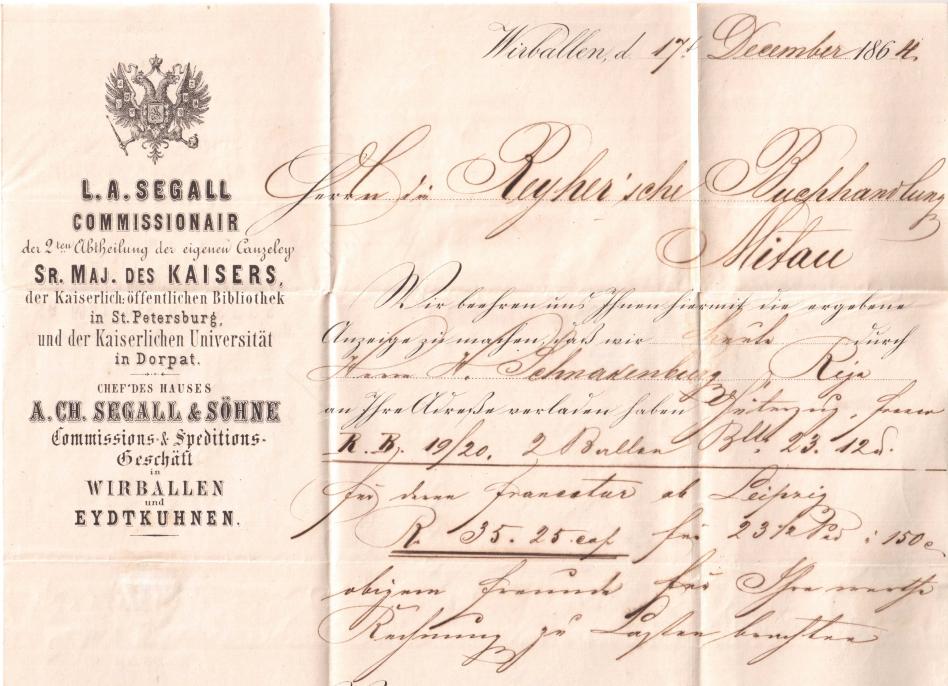 Wirballen, d. 17t December 1864.
L. A. SEGALL
COMMISSIONAIR
der 2ten Abtheilung der eigenen Canzeley
SR. MAJ. DES KAISERS,
der Kaiserlich: öffentlichen Bibliothek
in St. Petersburg,
und der Kaiserlichen Universität
in Dorpat.
CHEF DES HAUSES
A. CH. SEGALL & SÖHNE
Commissions- & Speditions-
Geschäft
in
WIRBALLEN
und
EYDTKUHNEN.
Herrn die Reyher'sche Buchhandlung
Mitau
Wir beehren uns Ihnen hiermit die ergebene
Anzeige zu machen, daß wir heute durch
Herrn H. Schnakenburg Riga
an Ihre Adreße verladen haben Güterzug, franco
R. B. 19/20. 2 Ballen Btt. 23. 12
für deren francatur ab Leipzig
R. 35. 25 cop für 23 12 Pud : 150 c
obigem Freunde für Ihre werthe
Rechnung zu Lasten brachten